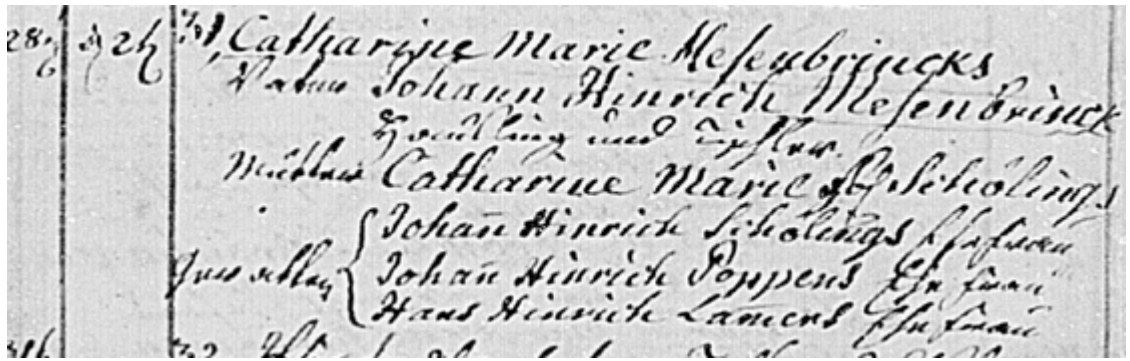 28 24 31 Catharine Marie Mesenbrincks
Vater Johann Hinrich Mesenbrinck
Häusling und Tischler.
Mutter Catharine Marie Schölings
Johan̄ Hinrich Schölings Ehefrau
Gevattern Johan̄ Hinrich Poppens Ehefrau
Hans Hinrich Lamers Ehefrau
32